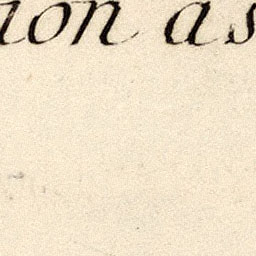 ion as